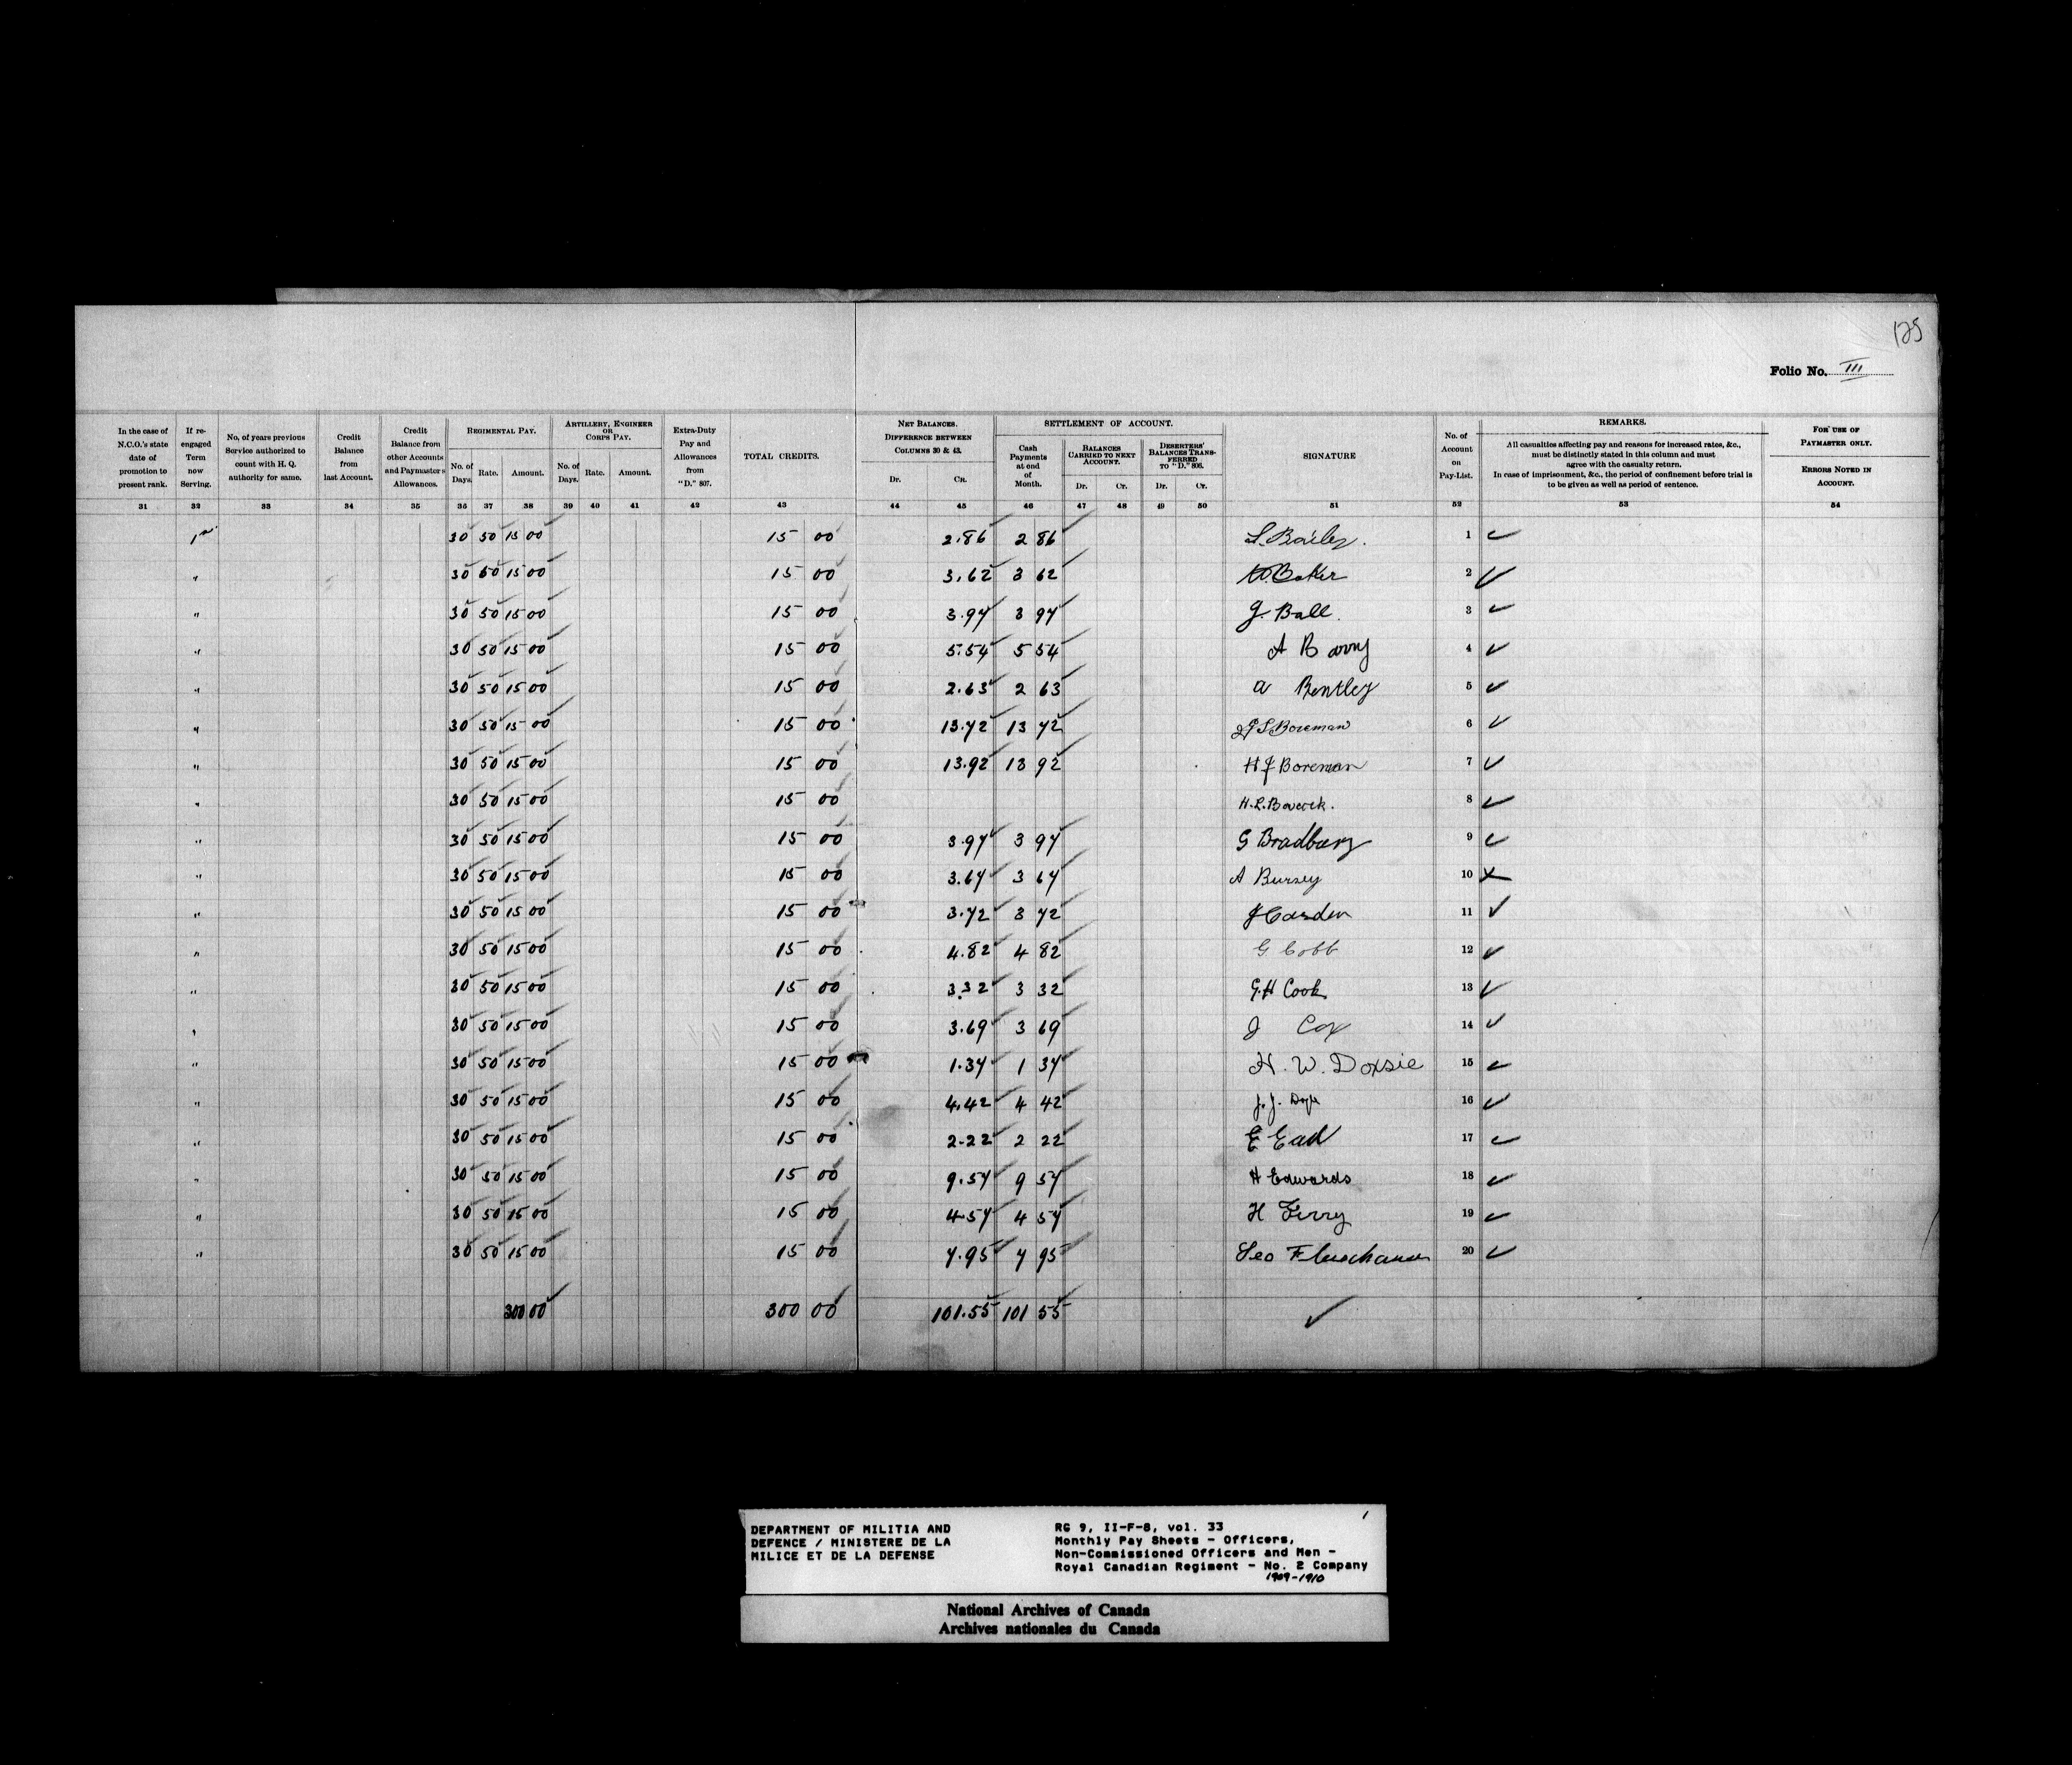 125
Folio No. III
In the case of N.C.O.'s state date of promotion to present rank.
If re-engaged Term now Serving.
No. of years previous Service authorized to count with H. Q. authority for same.
Credit Balance from last Account.
Credit Balance from other Accounts and Paymasters Allowances.
REGIMENTAL PAY.
No. of Days. Rate. Amount.
ARTILLERY, ENGINEER OR CORPS PAY.
No. of Days. Rate. Amount.
Extra-Duty Pay and Allowances from "D." 807.
TOTAL CREDITS.
NET BALANCES. DIFFERENCE BETWEEN COLUMNS 30 & 43.
Dr. Cr.
SETTLEMENT OF ACCOUNT.
Cash Payments at end of Month.
BALANCES CARRIED TO NEXT ACCOUNT.
Dr. Cr.
DESERTERS' BALANCES TRANSFERRED TO "D." 806.
Dr. Cr.
SIGNATURE
No. of Account on Pay-List.
REMARKS.
All casualties affecting pay and reasons for increased rates, &c., must be distinctly stated in this column and must agree with the casualty return.
In case of imprisonment, &c., the period of confinement before trial is to be given as well as period of sentence.
FOR USE OF PAYMASTER ONLY.
ERRORS NOTED IN ACCOUNT.
31 32 33 34 35 36 37 38 39 40 41 42 43 44 45 46 47 48 49 50 51 52 53 54
30 50 15 00 15 00 2.86 2 86 S. Bailey. 1
" 30 50 15 00 15 00 3.62 3 62 Baker 2
" 30 50 15 00 15 00 3.97 3 97 J. Ball. 3
" 30 50 15 00 15 00 5.54 5 54 A Barry 4
" 30 50 15 00 15 00 2.63 2 63 A Bentley 5
" 30 50 15 00 15 00 13.72 13 72 Boreman 6
" 30 50 15 00 15 00 13.92 13 92 H J Boreman 7
" 30 50 15 00 15 00 H. L. 8
" 30 50 15 00 15 00 3.97 3 97 G Bradbury 9
" 30 50 15 00 15 00 3.67 3 67 A Bursey 10
" 30 50 15 00 15 00 3.72 3 72 J Carden 11
" 30 50 15 00 15 00 4.82 4 82 G Cobb 12
" 30 50 15 00 15 00 3.32 3 32 G. H Cook 13
" 30 50 15 00 15 00 3.69 3 69 J Cox 14
" 30 50 15 00 15 00 1.37 1 37 H. W. Doxsie 15
" 30 50 15 00 15 00 4.42 4 42 J. J. 16
" 30 50 15 00 15 00 2.22 2 22 E Ead 17
" 30 50 15 00 15 00 9.57 9 57 H Edwards 18
" 30 50 15 00 15 00 4.57 4 57 H Ferry 19
" 30 50 15 00 15 00 7.95 7 95 Geo 20
300 00 300 00 101.55 101 55
DEPARTMENT OF MILITIA AND
DEFENCE / MINISTERE DE LA
MILICE ET DE LA DEFENSE
RG 9, II-F-8, vol. 33
Monthly Pay Sheets - Officers,
Non-Commissioned Officers and Men -
Royal Canadian Regiment - No. 2 Company
1909-1910
National Archives of Canada
Archives nationales du Canada